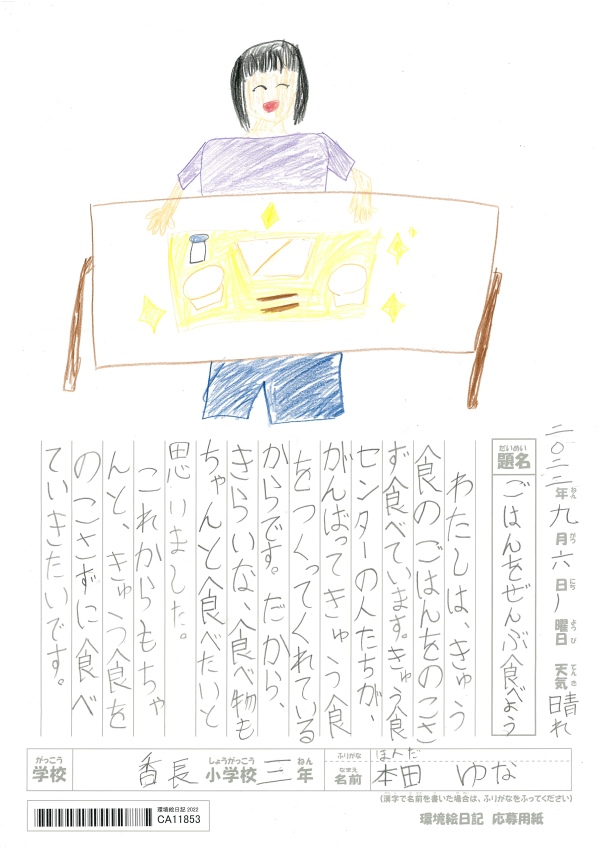 二〇二二年九月六日(ー)曜日 天気 晴れ
ねん がつ にち ようび てんき
だいめい
題名 ごはんをぜんぶ食べよう
わたしは、きゅう
食のごはんをのこさ
ず食べています。きゅう食
センターの人たちが、
がんばってきゅう食
をつくってくれている
からです。だから、
きらいな、食べ物も
ちゃんと食べたいと
思いました。
これからもちゃ
んと、きゅう食を
のこさずに食べ
ていきたいです。
がっこう しょうがっこう ねん
学校 香長 小学校 三年
ふりがな ほんだ
なまえ
名前 本田 ゆな
(漢字で名前を書いた場合は、ふりがなをふってください)
環境絵日記 2022
CA11853
環境絵日記 応募用紙